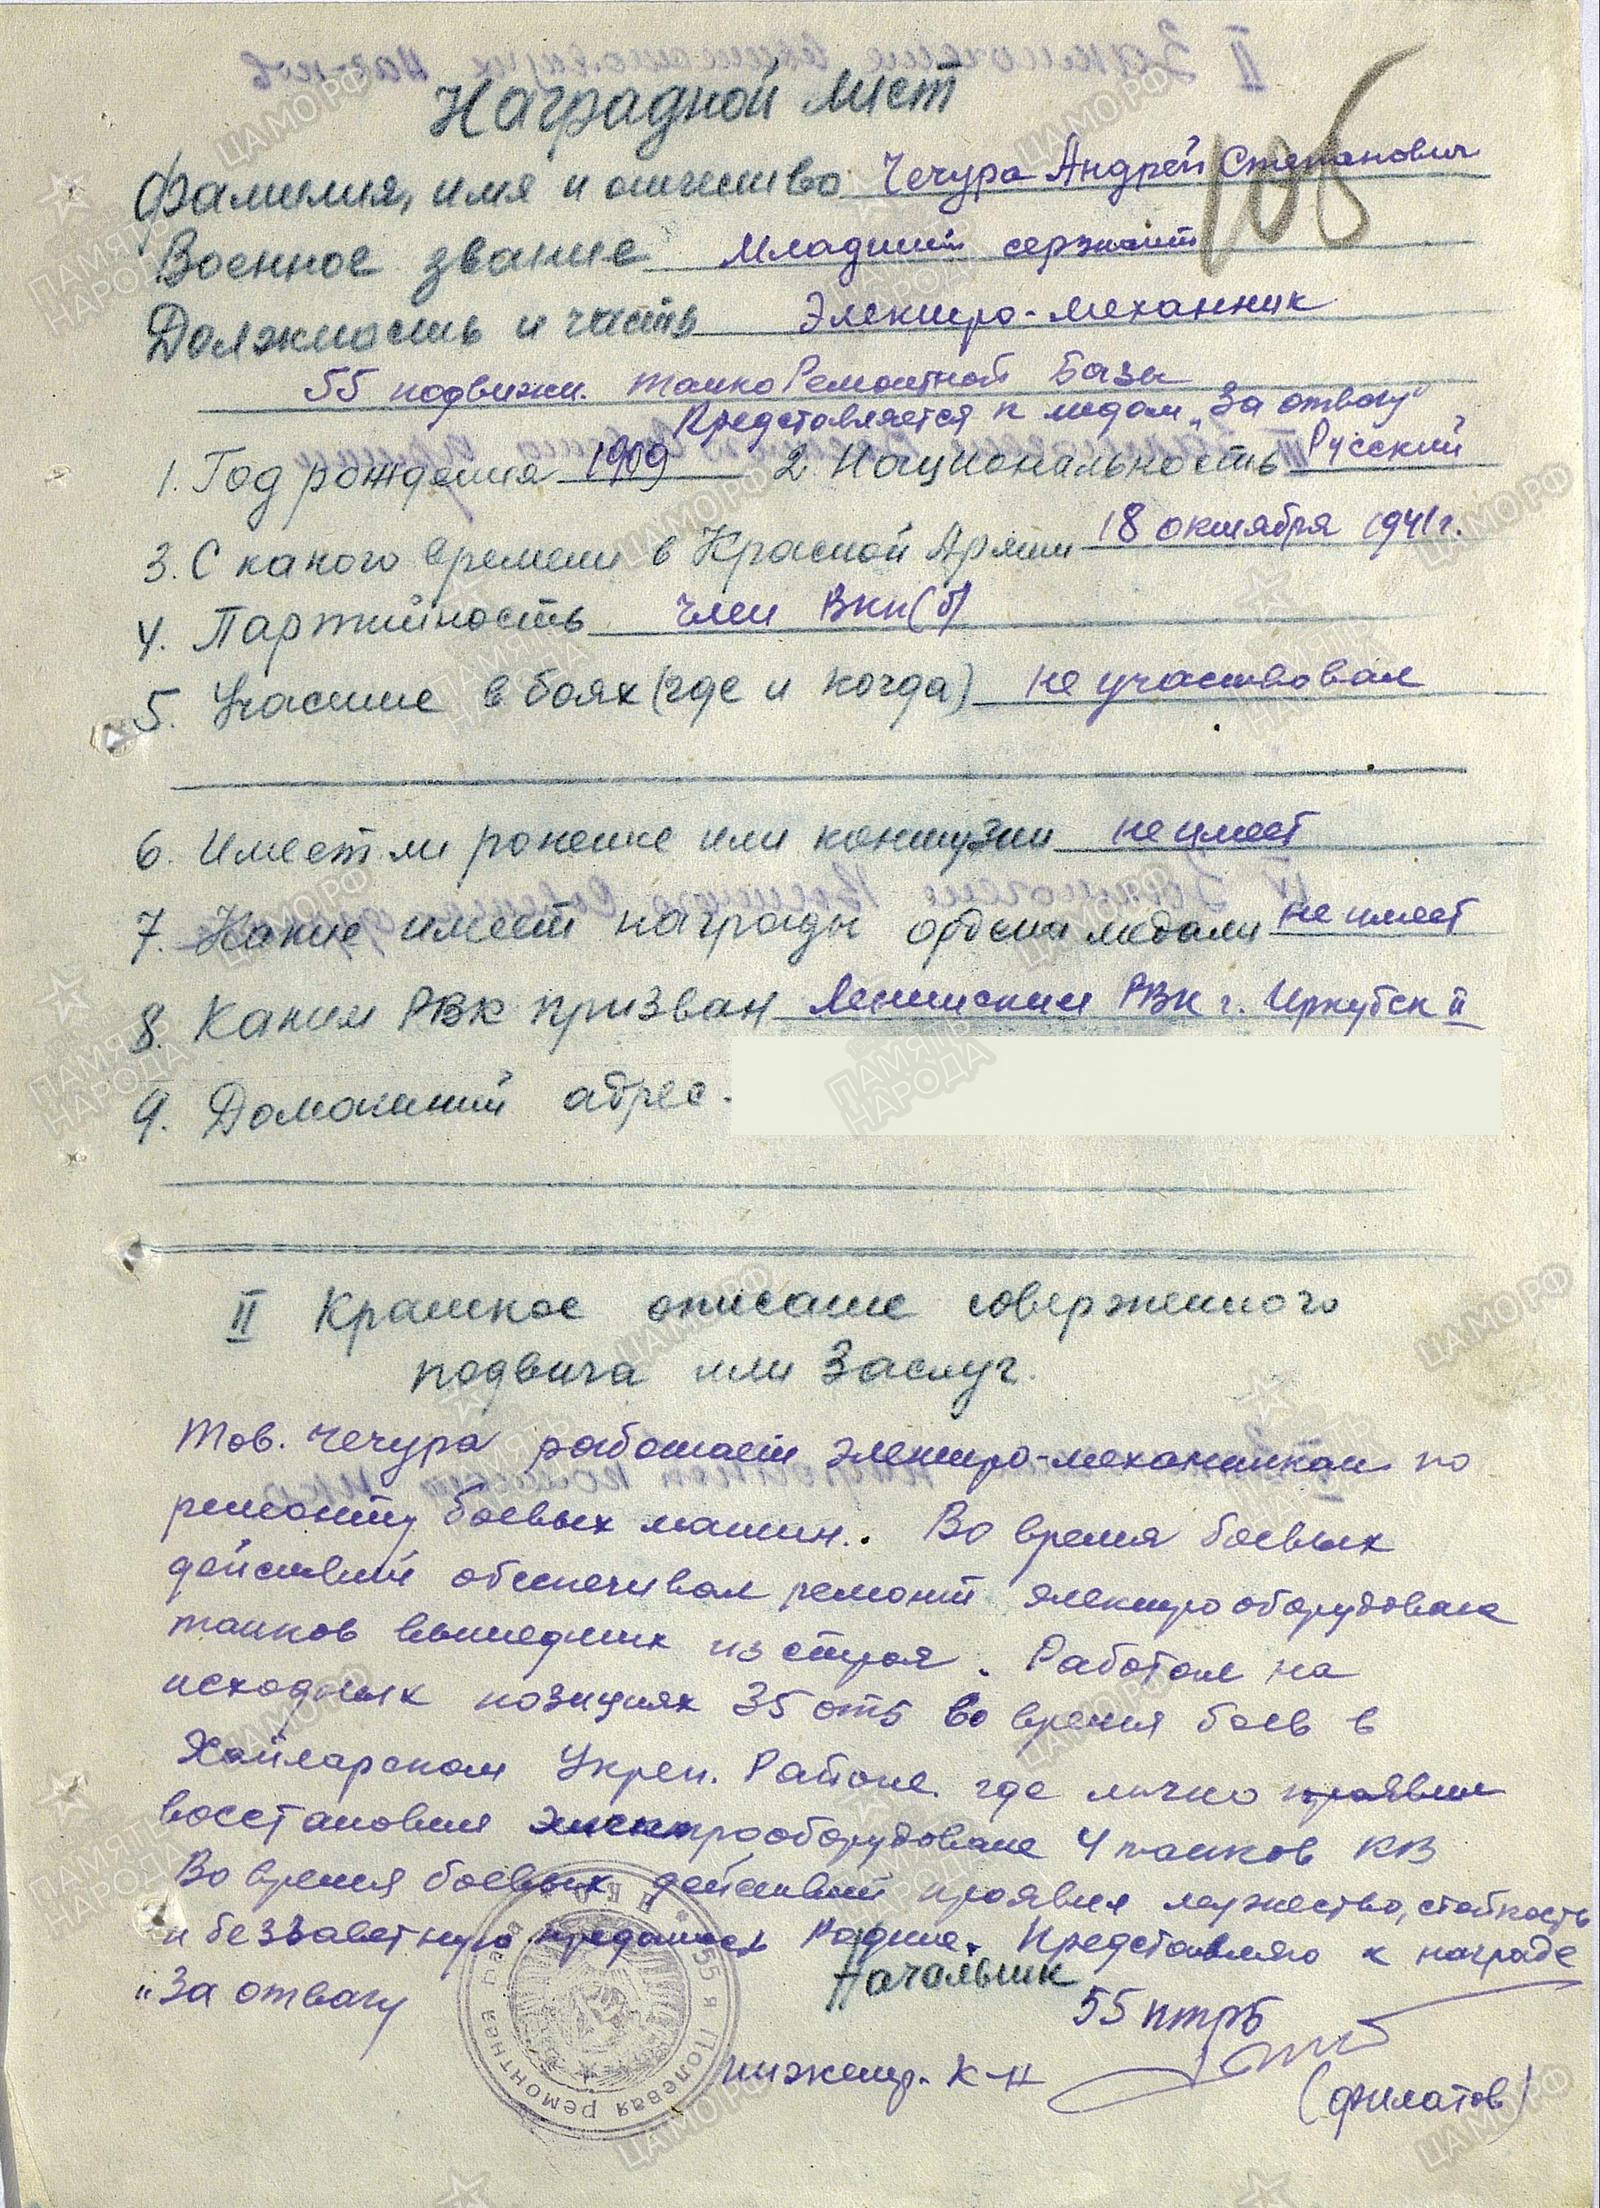 Наградной лист
106
Фамилия, имя и отчество Чечура Андрей Степанович
Военное звание Младший сержант
Должность и часть Электро-механник
55 подвижн. танкоРемонтной Базы
Представляется к медали „За отвагу"
1. Год рождения 1909 2. Национальность Русский
3. С какого времени в Красной Армии 18 октября 1941 г.
4. Партийность член ВКП(б)
5. Участие в боях (где и когда) не участвовал
6. Имеет ли ранение или контузии не имеет
7. Какие имеет награды ордена медали не имеет
8. Каким РВК призван Ленинским РВК г. Иркутск II
9. Домашний адрес.
II Краткое описание совершенного
подвига или Заслуг.
Тов. Чечура работает электро-механиком по
ремонту боевых машин. Во время боевых
действий обеспечивал ремонт электрооборудован
танков вышедших из строя. Работал на
исходных позициях 35 отб во время боев в
Хайларском Укреп. Районе где лично проявил
восстановил электрооборудование 4 танков КВ
Во время боевых действий проявил мужество, стойкость
и беззаветную преданость Родине. Представляю к награде
„За отвагу
Начальник
55 птрб
инженер. К-н
(Филатов)
НКО * 55-я Полевая ремонтная база
ПАМЯТЬ НАРОДА
ЦАМО РФ